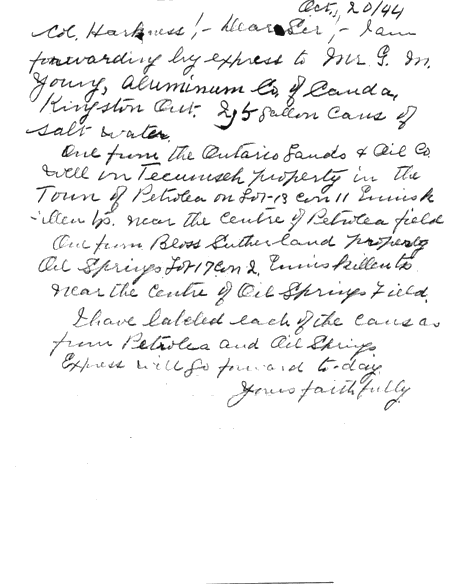 Oct., 20/44
Col. Harkness!- Dear Sir!- I am
forwarding by express to Mr G. M.
Young, Aluminum Co. of Canda,
Kingston Ont. 2 5 gallon cans of
salt water.
One from the Ontario Lands & Oil Co.
well on Tecumseh property in the
Town of Petrolea on Lot-13 Con 11 Ennisk
illen tp. near the Centre of Petrolea field
One from Bloss Sutherland property
Oil Springs Lot 17 Con 2, Enniskillen tp
near the Centre of Oil Springs Field.
I have labeled each of the cans as
from Petrolea and Oil Springs
Express will go forward to-day.
Yours faithfully